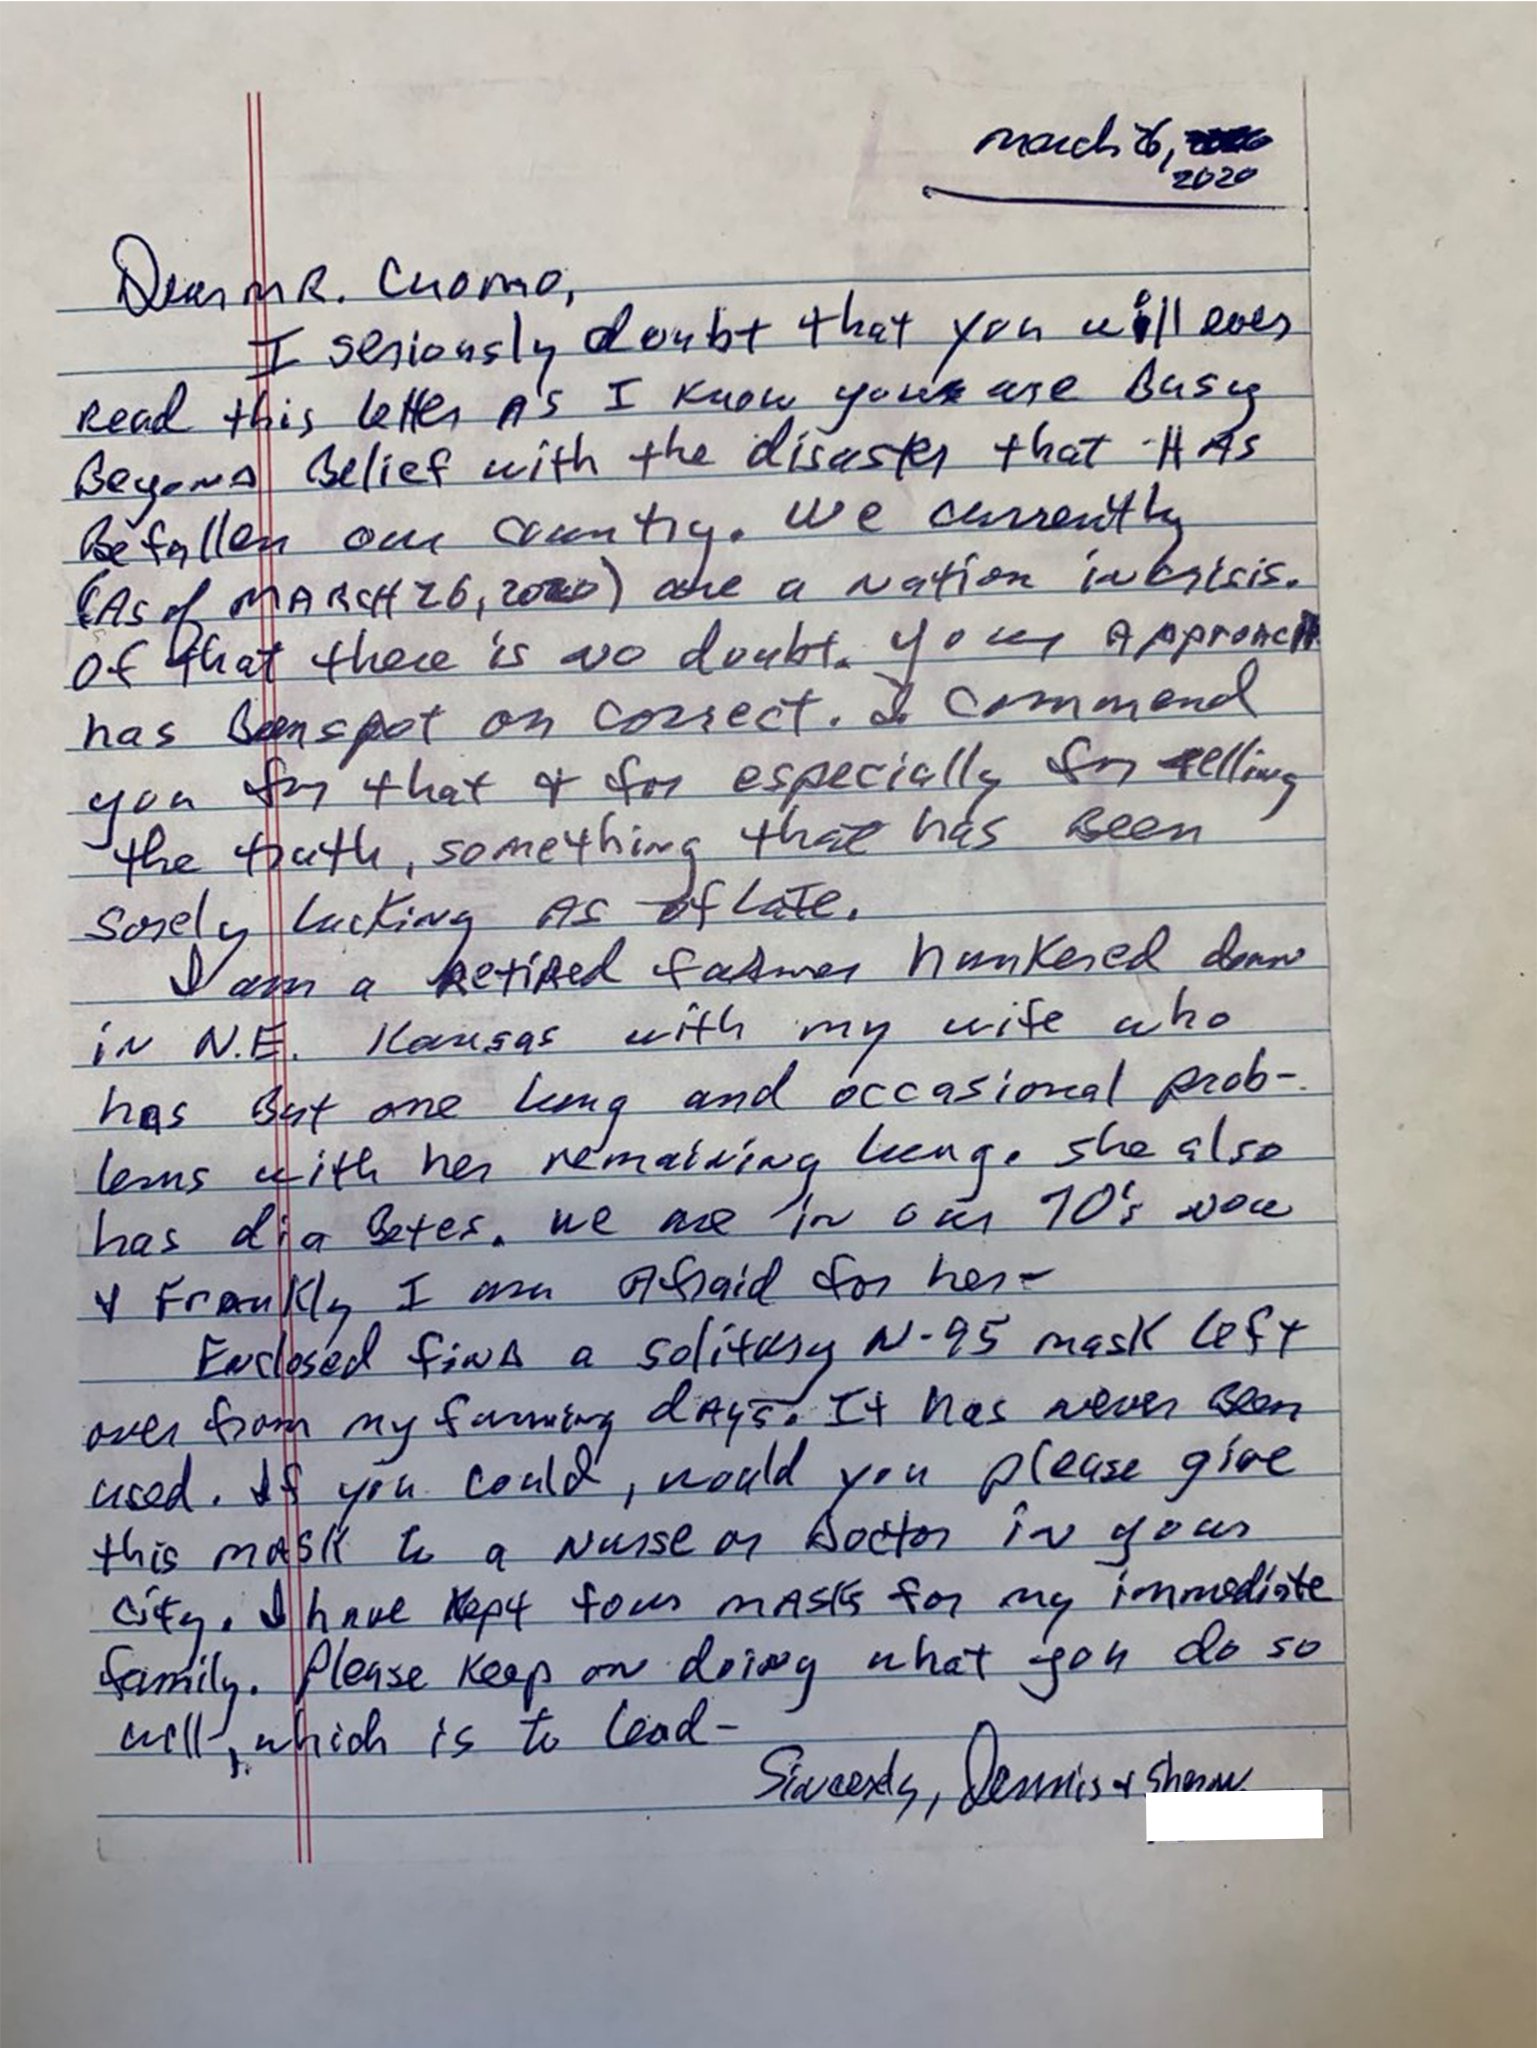 March 26,
2020
Dear MR. Cuomo,
I seriously doubt that you will ever
Read this letter As I know you are Busy
Beyond Belief with the disaster that HAS
Befallen our country. We currently
(As of MARCH 26, 2020) are a Nation in crisis.
Of that there is no doubt. Your Approach
has Been spot on correct. I commend
you for that & for especially for telling
the truth, something that has Been
sorely lacking AS of late.
I am a Retired farmer hunkered down
in N.E. Kansas with my wife who
has But one lung and occasional prob-
lems with her remaining lung. She also
has diaBetes. We are in our 70's now
& Frankly I am Afraid for her-
Enclosed find a solitary N-95 mask left
over from my farming days. It has never Been
used. If you could, would you please give
this mASK to a Nurse or Doctor in your
city. I have kept four mASKs for my immediate
family. Please Keep on doing what you do so
well, which is to lead-
Sincerely, Dennis & Sharon